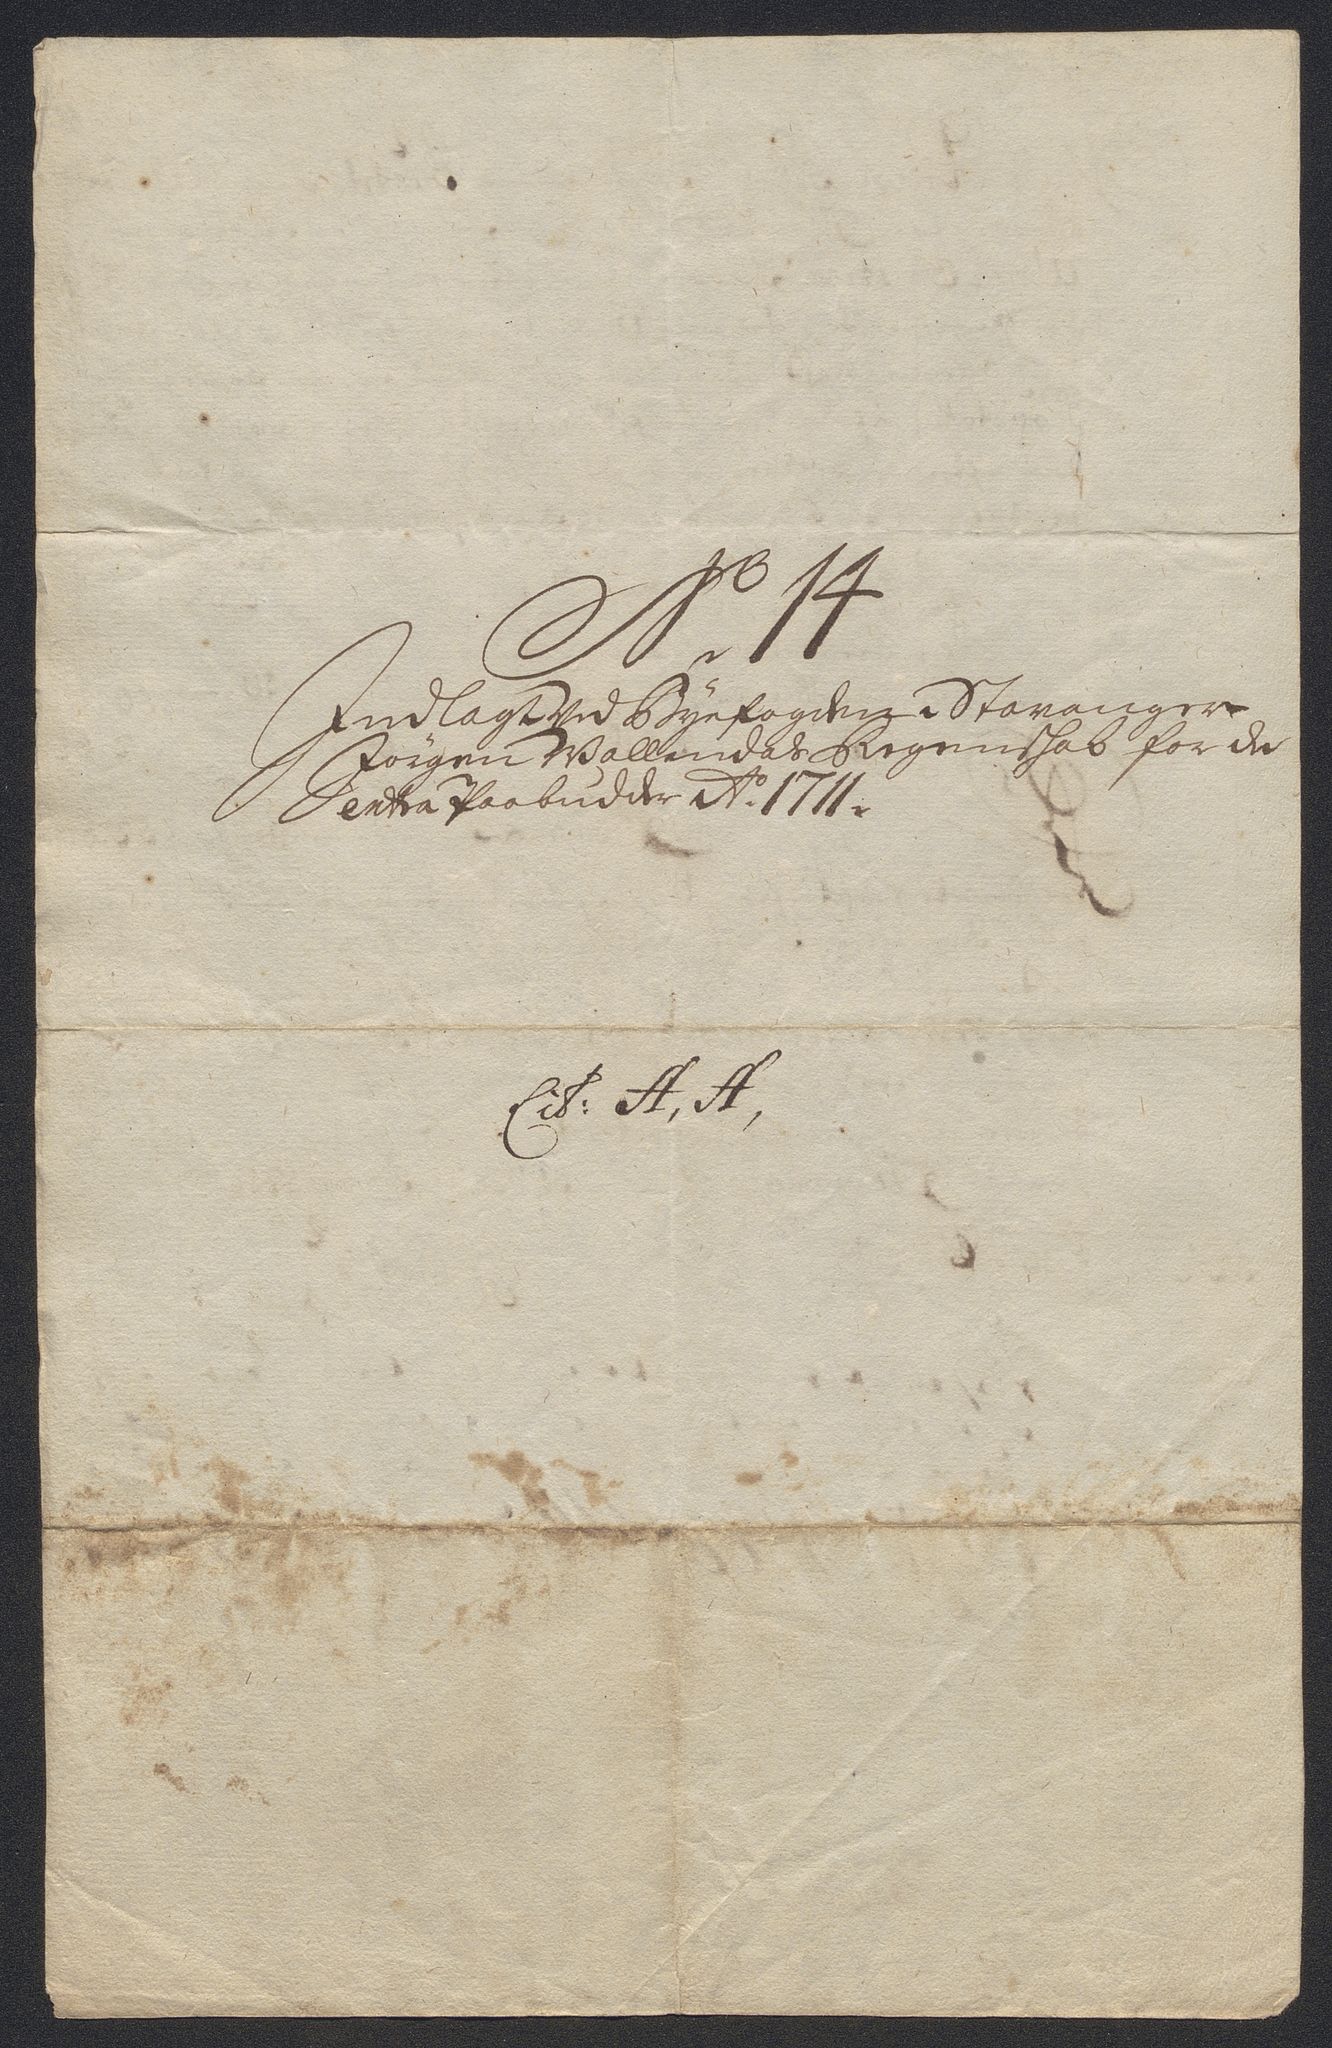 No 14
Indlagt Ved Byefogden i Stavanger
Jørgen Wallendals Regenschab for de
Extra Paabudder Ao. 1711.
Lit: A, A,